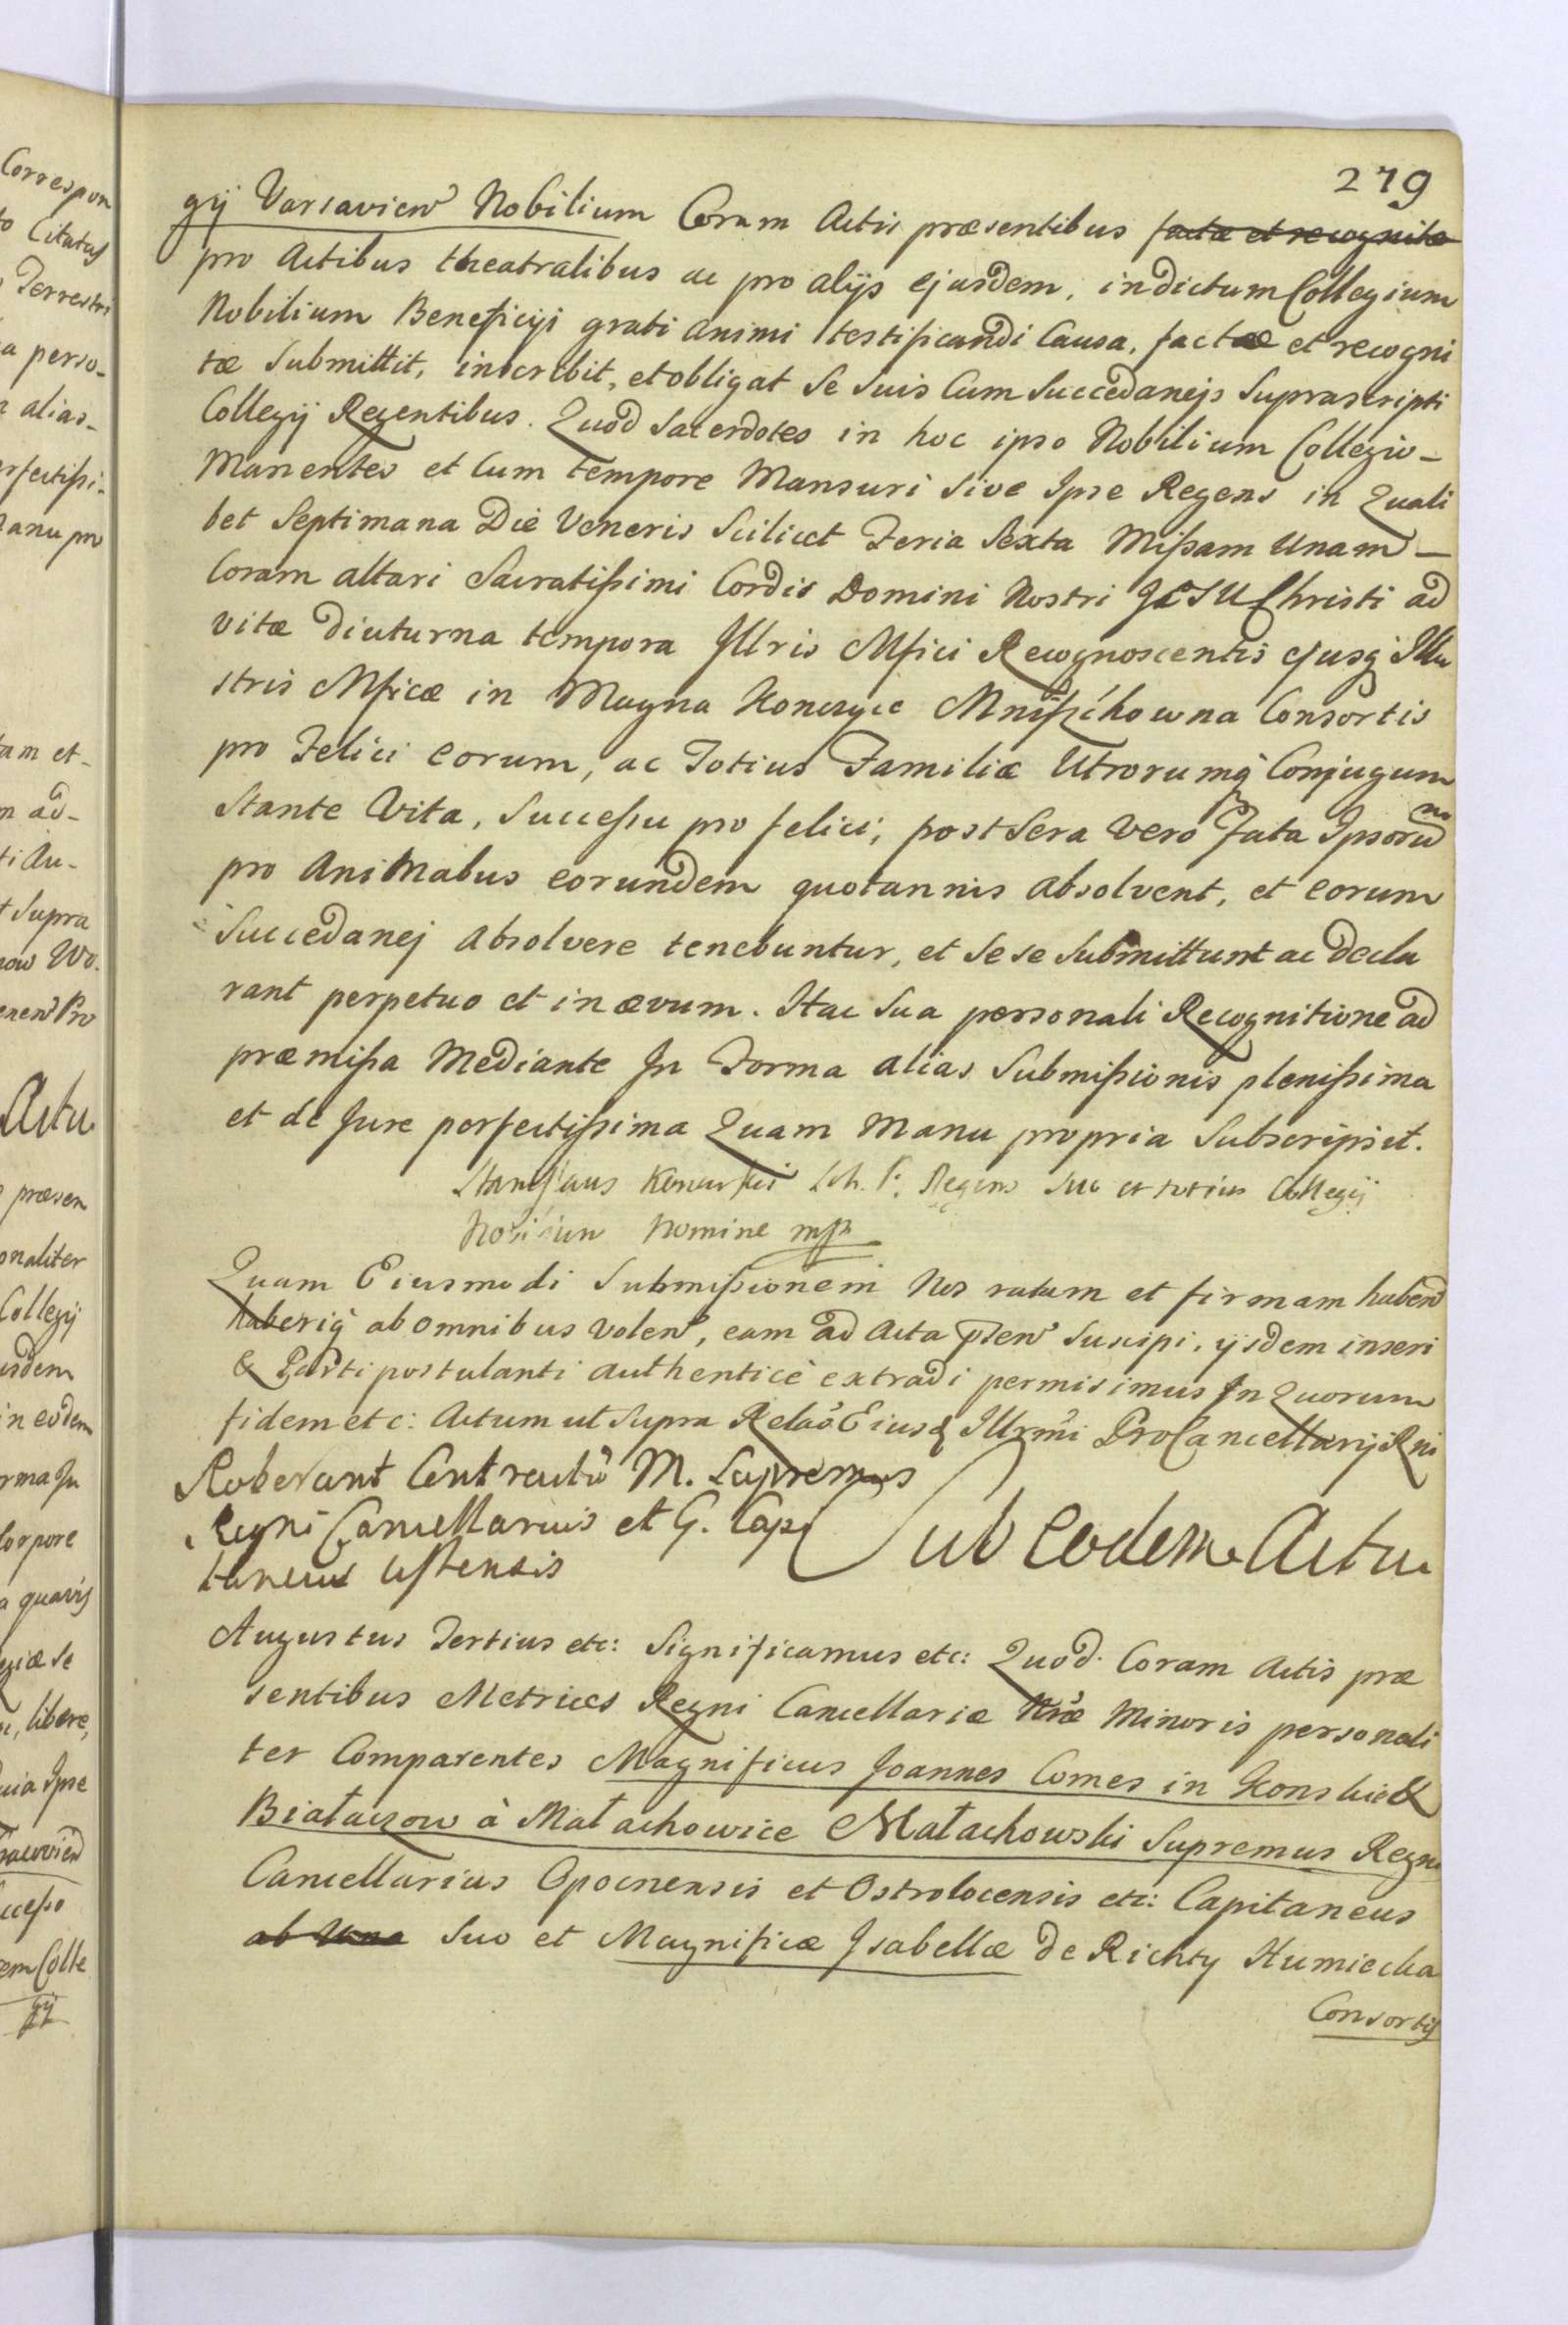 279
gij Varsavien Nobilium Coram Actis præsentibus factæ et recognitæ
pro Actibus theatralibus ac pro alijs ejusdem, in dictum Collegium
Nobilium Beneficiji grati animi testificandi Causa, factæ et recogni
tæ Submittit, inscribit, et obligat Se Suis Cum Succedanejs Suprascripti
Collegij Regentibus. Quod Sacerdotes in hoc ipso Nobilium Collegio –
Manentes et Cum tempore Mansuri Sive Ipse Regens in Quali
bet Septimana Die Veneris Scilicet Feria Sexta Missam Unam –
Coram altari Sacratissimi Cordis Domini Nostri JESU Christi ad
vitæ diuturna tempora Illris Mfici Recognoscentis ejusq Illu
stris Mficæ in Magna Konczyce Mniszchowna Consortis
pro Felici eorum, ac Totius Familiæ Utrorumq Conjugum
Stante Vita, Successu pro felici, post Sera vero Fata Ipsorum
pro Animabus eorundem quotannis absolvent, et eorum
Succedanej absolvere tenebuntur, et Se se Submittunt ac Decla
rant perpetuo et in ævum. Hac Sua personali Recognitione ad
præmissa Mediante In Forma alias Submissionis plenissima
et de Jure perfectissima Quam Manu propria Subscripsit.
Stanislaus Konarski Sch. P. Regens Suo et totius Collegij
Nobilium Nomine mp
Quam Eiusmodi Submissionem Nos ratam et firmam haben
haberiq ab omnibus volen, eam ad Acta pñsen Suscipi, ijsdem inseri
& Parti postulanti authenticè extradi permisimus In Quorum
fidem etc: Actum ut Supra Relaõ Eiusd Illrmi ProCancellarij Rni
Roberant Centrentur M. Supremus
Regni Cancellarius et G. Capi
taneus Ustensis
Sub Eodem Actu
Augustus Tertius etc: Significamus etc: Quod Coram Actis præ
sentibus Metrices Regni Cancellariæ Nræ Minoris personali
ter Comparentes Magnificus Joannes Comes in Konskie &
Białaczow à Małachowice Małachowski Supremus Regni
Cancellarius Opocnensis et Ostrolocensis etc: Capitaneus
ab Una Suo et Magnificæ Isabellæ de Richty Humiecka
Consortis